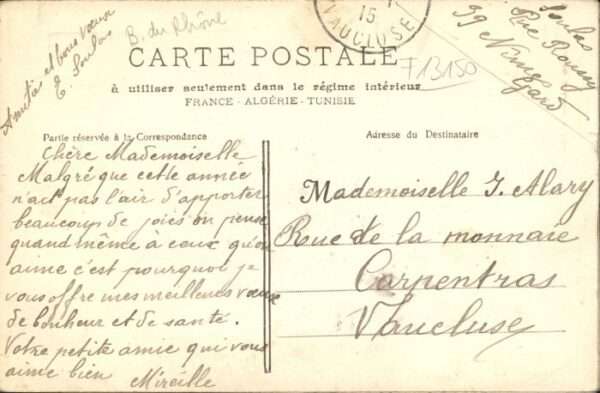 Amitiés et bons vœux
E. Soulas
B. du Rhône
15
VAUCLUSE
Soulas
Rue Roussy
39 Nîmes
Gard
F13150
CARTE POSTALE
à utiliser seulement dans le régime intérieur
FRANCE - ALGÉRIE - TUNISIE
Partie réservée à la Correspondance
Chère Mademoiselle
Malgré que cette année
n'ait pas l'air d'apporter
beaucoup de joies on pense
quand même à ceux qu'on
aime c'est pourquoi je
vous offre mes meilleurs vœux
de bonheur et de santé.
Votre petite amie qui vous
aime bien
Mireille
Adresse du Destinataire
Mademoiselle J. Alary
Rue de la monnaie
Carpentras
Vaucluse